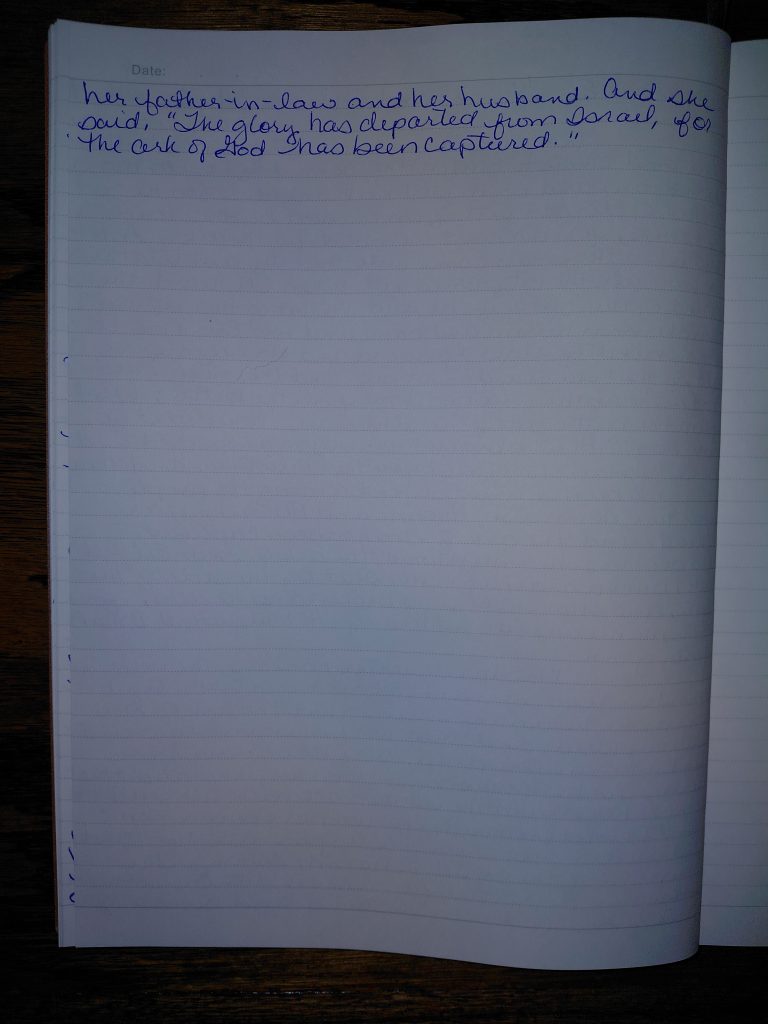 Date:
her father-in-law and her husband. And she
said, "The glory has departed from Israel, for
the ark of God has been captured."